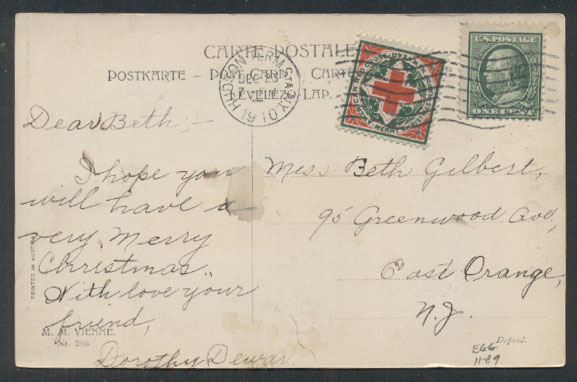 CARTE POSTALE
POSTKARTE
LEVELEZÖ-LAP.
HUDSON TERM. STA. N.Y.
DEC 23
1910
U.S. POSTAGE
ONE CENT
Dear Beth,-
I hope you
will have a
very Merry
Christmas.
With love your
friend,
Dorothy Dewar
Miss Beth Gilbert,
90 Greenwood Ave,
East Orange,
N.J.
PRINTED IN AUSTRIA
M. M. VIENNE.
Nr. 256
Dépost.
EGG
11-89